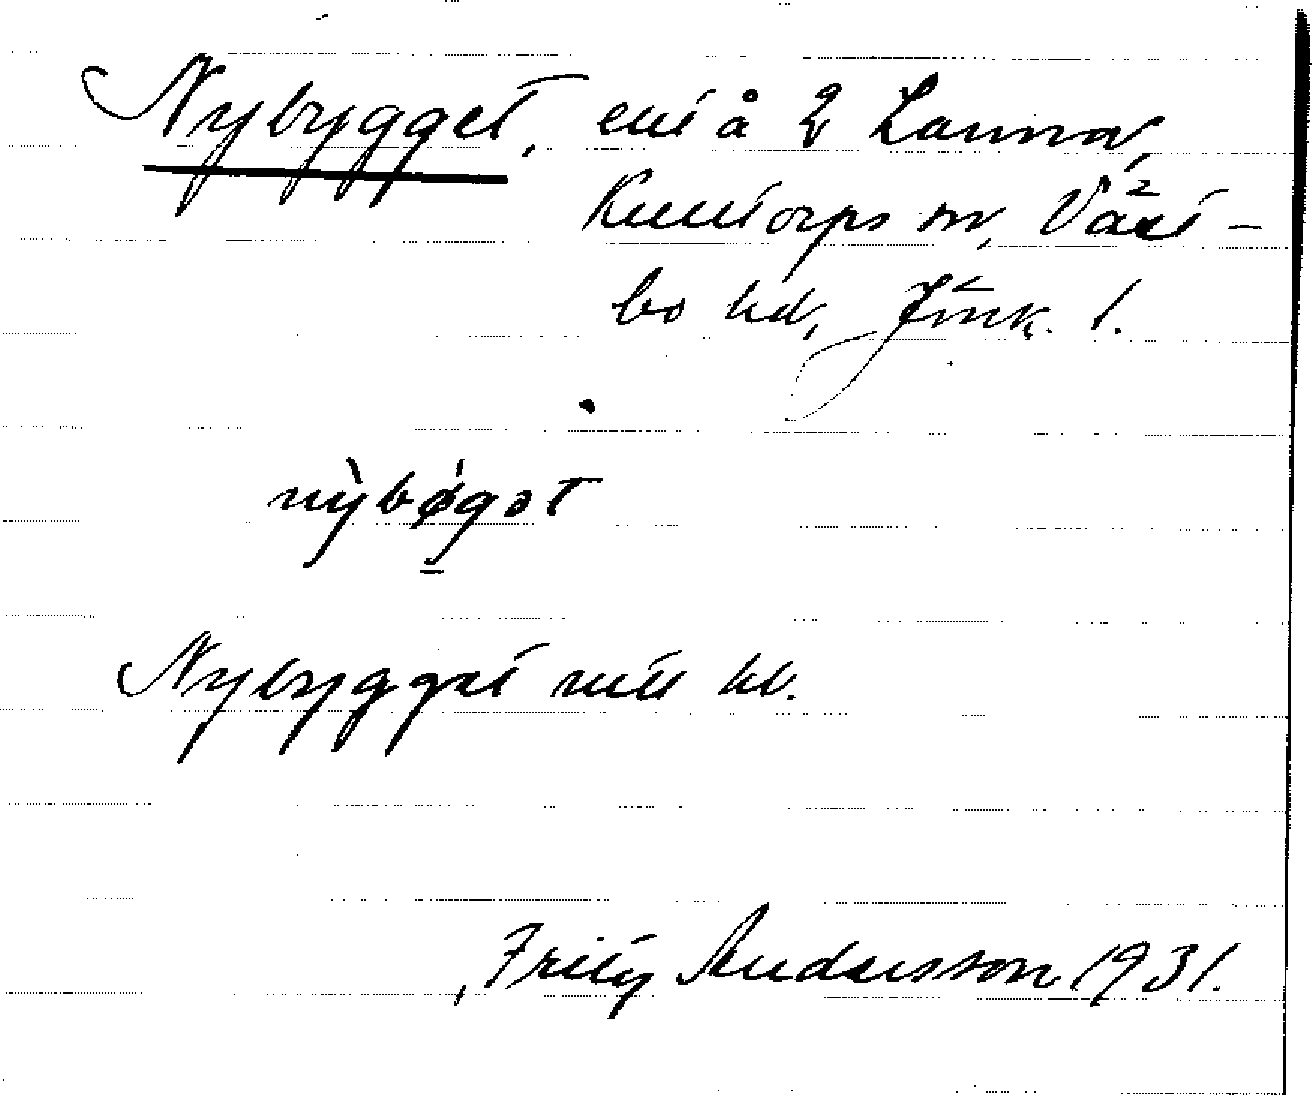 Nybygget, å 2 Lanna,
Kulltorps sn, Väst-
bo hd, Jönk. l.
nỳbǿgət
Nybygget
Fritz Andersson 1931.